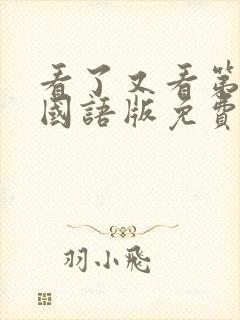 看了又看第
國語版免費
羽小飛